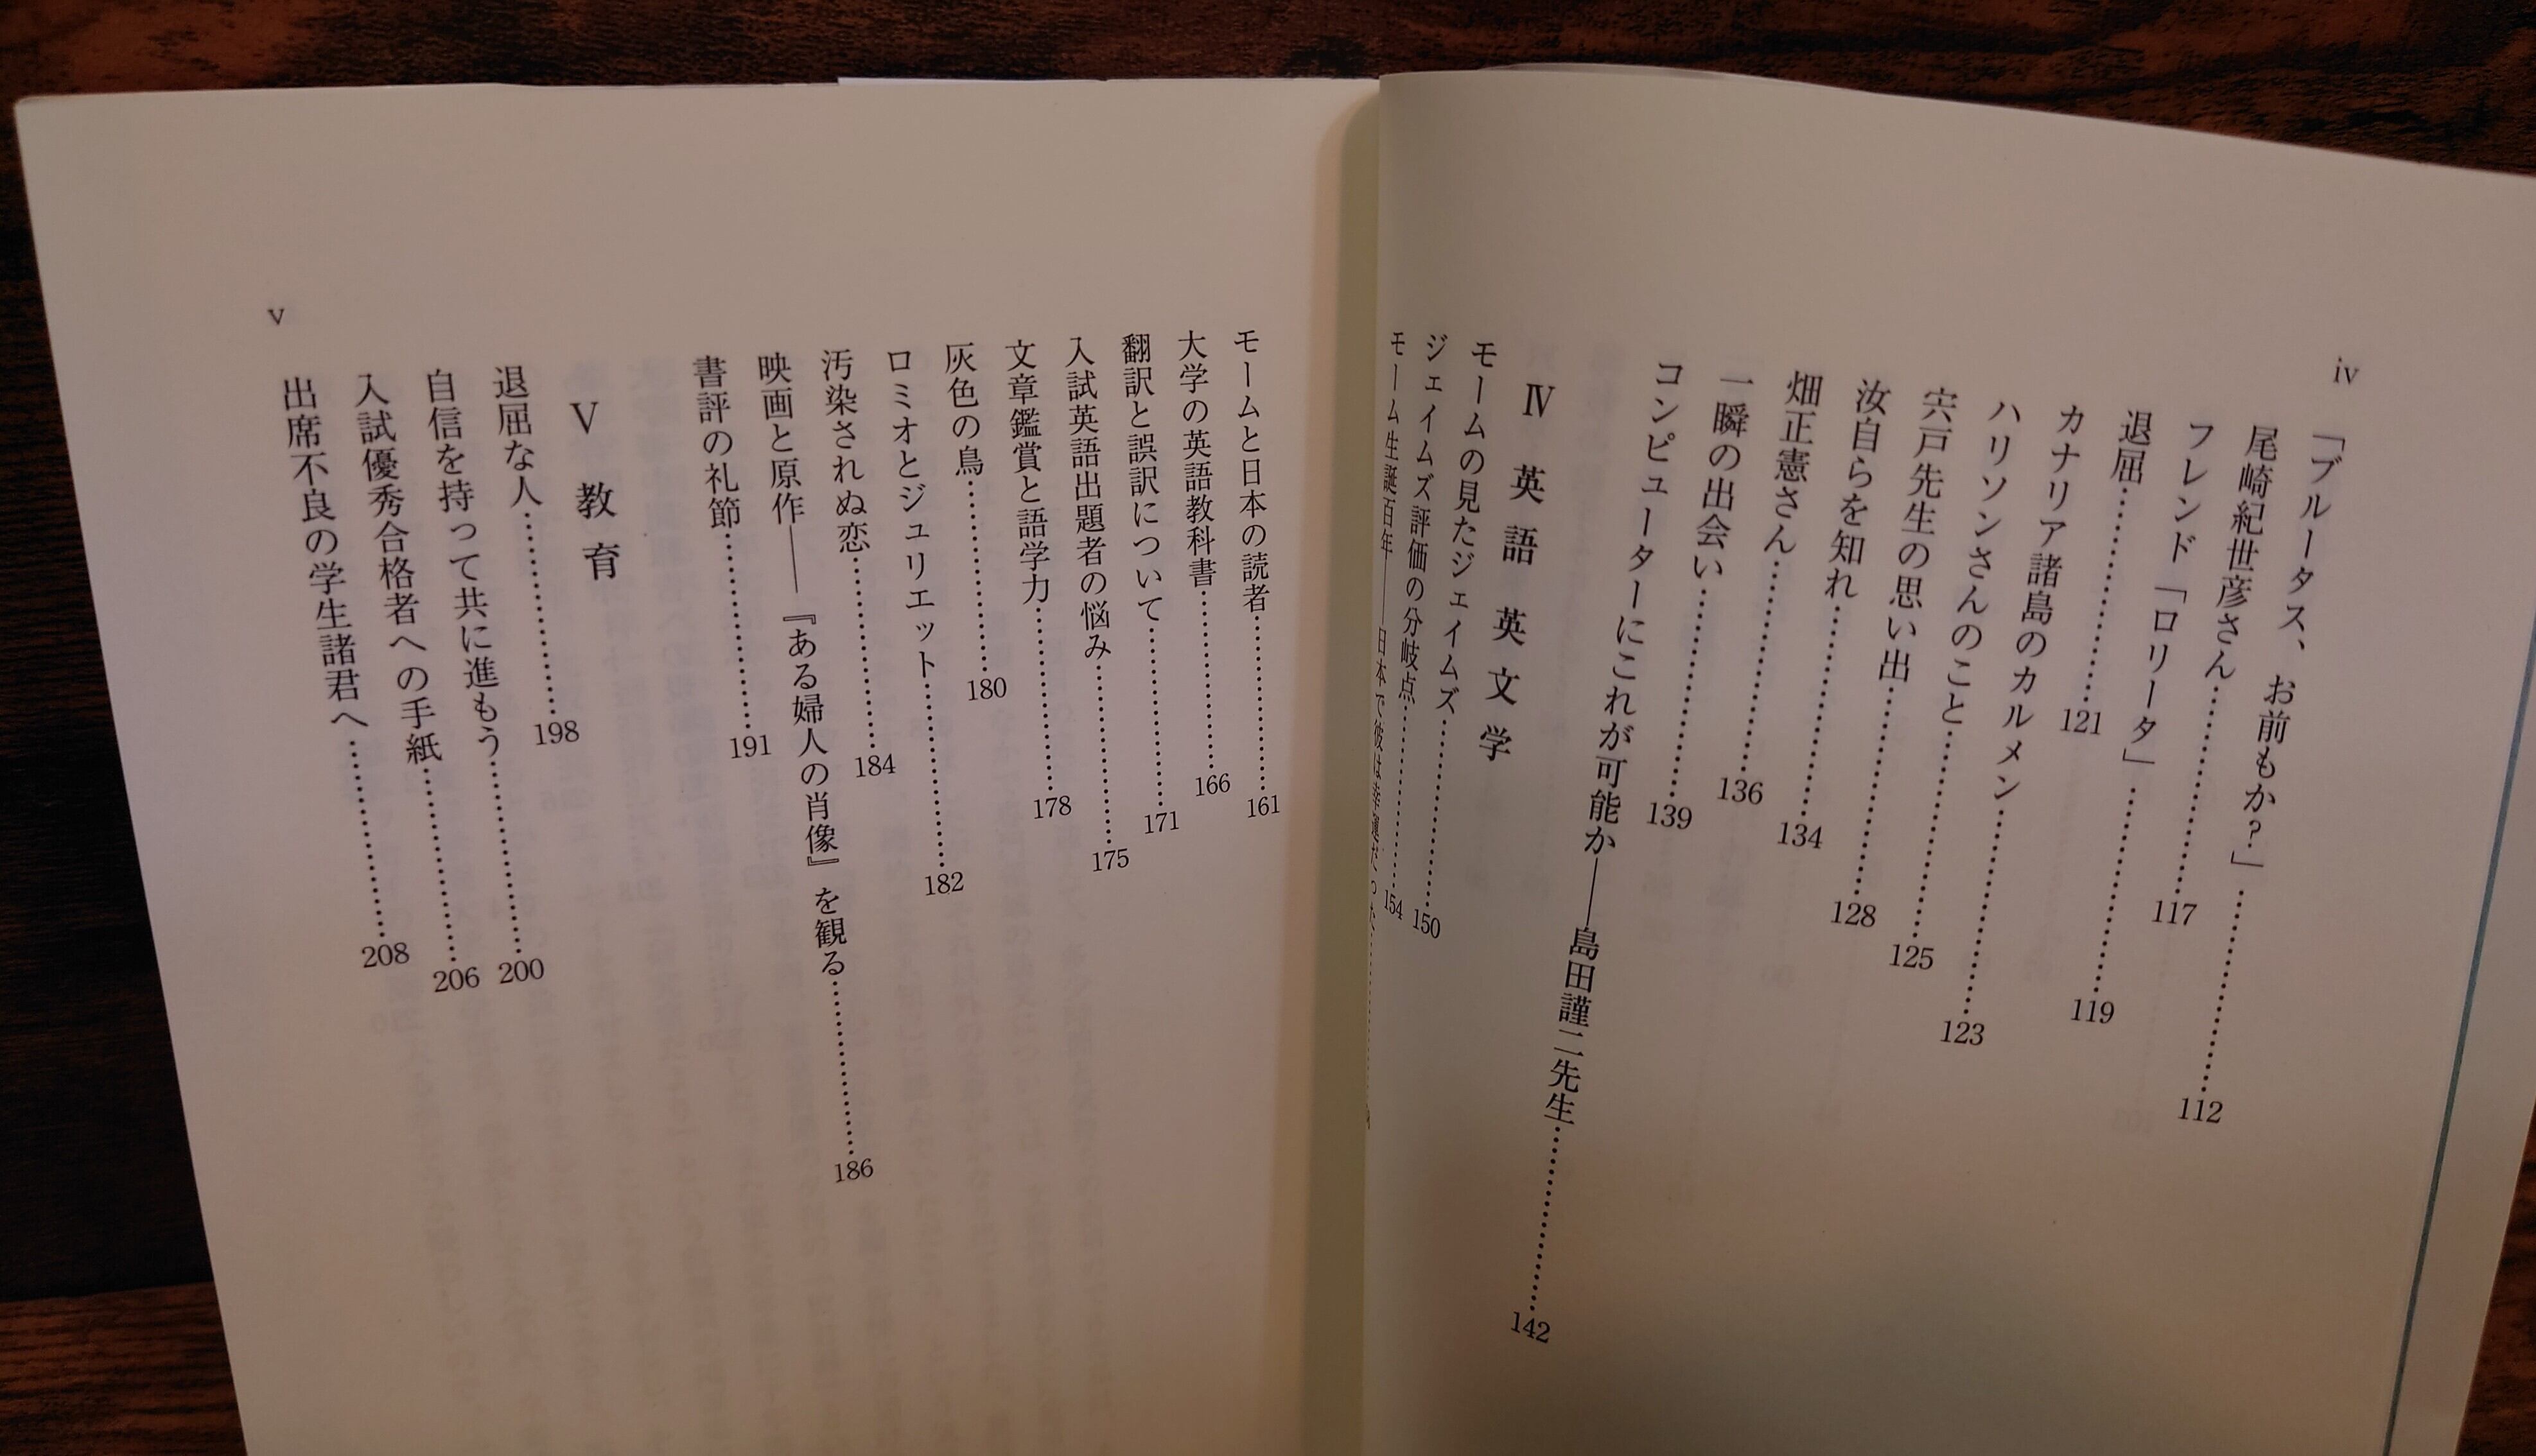 iv
「ブルータス、お前もか?」…………112
尾崎紀世彦さん…………117
フレンド「ロリータ」…………119
退屈…………121
カナリア諸島のカルメン…………123
ハリソンさんのこと…………125
宍戸先生の思い出…………128
汝自らを知れ…………134
畑正憲さん…………136
一瞬の出会い…………139
コンピューターにこれが可能か――島田謹二先生…………142
Ⅳ 英語 英文学
モームの見たジェイムズ…………150
ジェイムズ評価の分岐点…………154
モーム生誕百年――日本で彼は幸運だった…………
モームと日本の読者…………161
大学の英語教科書…………166
翻訳と誤訳について…………171
入試英語出題者の悩み…………175
文章鑑賞と語学力…………178
灰色の鳥…………180
ロミオとジュリエット…………182
汚染されぬ恋…………184
映画と原作――『ある婦人の肖像』を観る…………186
書評の礼節…………191
Ⅴ 教育
退屈な人…………198
自信を持って共に進もう…………200
入試優秀合格者への手紙…………206
出席不良の学生諸君へ…………208
v